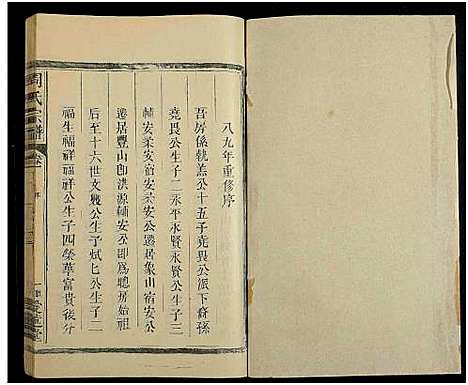 八九年重修序
吾房係執羔公十五子堯畏公派下裔孫
堯畏公生子二永平永賢永賢公生子三
輔安柔安宿安柔安公遷居象山宿安公
遷居豐山卽洪源輔安公卽爲聽房始祖
後至十六世文襲公生子斌七公生子二
福生福祥福祥公生子四榮華富貴後分
周氏宗譜
卷
序